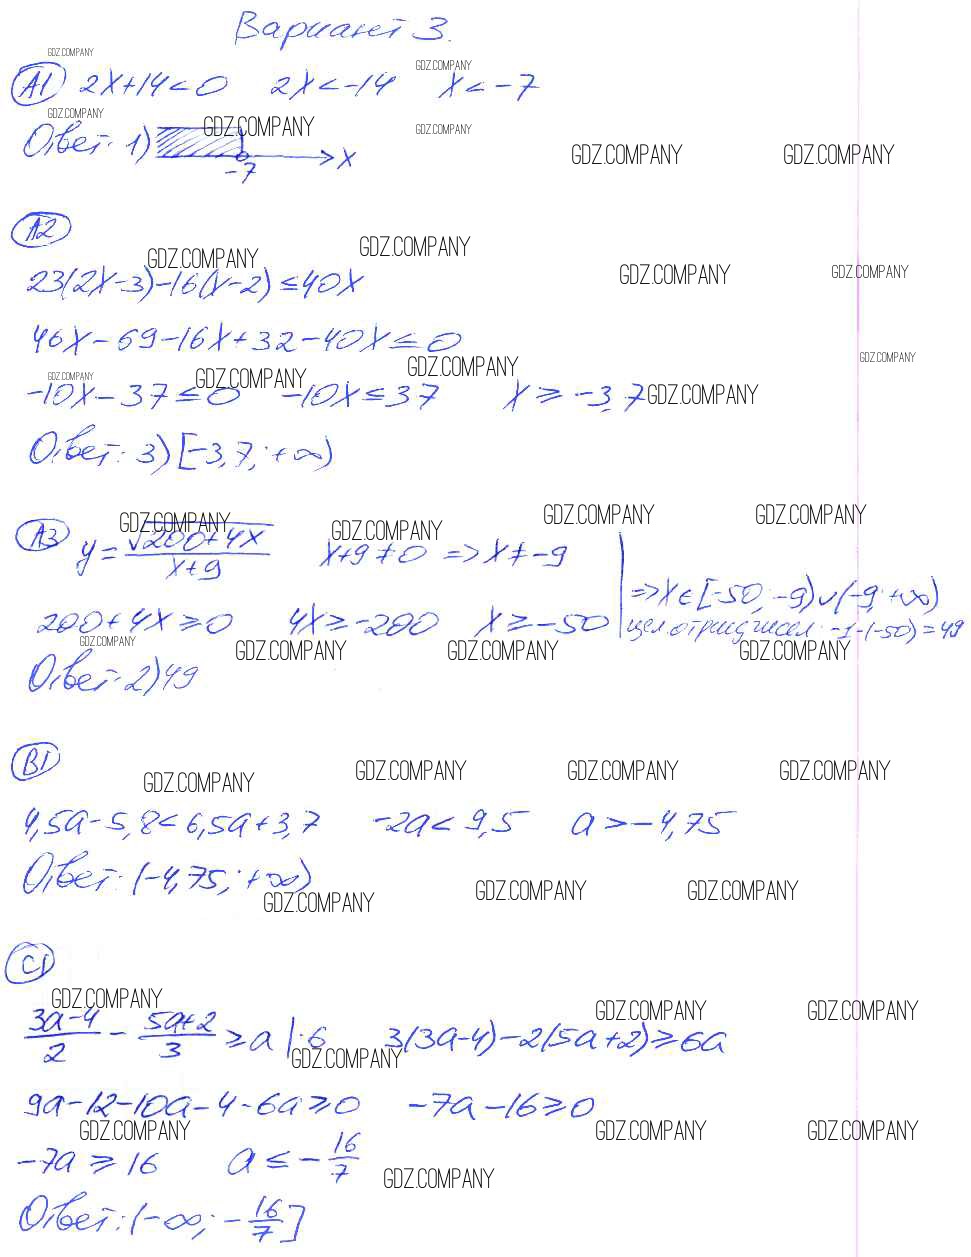 Вариант 3.
GDZ.COMPANY
GDZ.COMPANY
А1 2x+14<0 2x<-14 x<-7
GDZ.COMPANY
GDZ.COMPANY GDZ.COMPANY
Ответ: 1) -7 x
GDZ.COMPANY GDZ.COMPANY
А2
GDZ.COMPANY GDZ.COMPANY
GDZ.COMPANY GDZ.COMPANY
23(2x-3)-16(x-2)≤40x
46x-69-16x+32-40x≤0
GDZ.COMPANY GDZ.COMPANY GDZ.COMPANY GDZ.COMPANY
-10x-37≤0 -10x≤37 x≥-3,7 GDZ.COMPANY
Ответ: 3) [-3,7; +∞)
GDZ.COMPANY GDZ.COMPANY GDZ.COMPANY GDZ.COMPANY
А3 y=√(200+4x)/(x+9) x+9≠0 => x≠-9
=> x∈[-50; -9)∪(-9; +∞)
200+4x≥0 4x≥-200 x≥-50
цел отриц чисел: -1-(-50)=49
GDZ.COMPANY GDZ.COMPANY GDZ.COMPANY GDZ.COMPANY
Ответ: 2) 49
В1
GDZ.COMPANY GDZ.COMPANY GDZ.COMPANY GDZ.COMPANY
4,5a-5,8<6,5a+3,7 -2a<9,5 a>-4,75
Ответ: (-4,75; +∞)
GDZ.COMPANY GDZ.COMPANY GDZ.COMPANY
С1
GDZ.COMPANY GDZ.COMPANY GDZ.COMPANY
(3a-4)/2 - (5a+2)/3 ≥ a |·6 3(3a-4)-2(5a+2)≥6a
GDZ.COMPANY
9a-12-10a-4-6a≥0 -7a-16≥0
GDZ.COMPANY GDZ.COMPANY GDZ.COMPANY
-7a≥16 a≤-16/7
GDZ.COMPANY
Ответ: (-∞; -16/7]